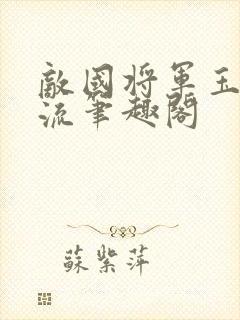 敵國將軍玉
流筆趣閣
蘇紫萍